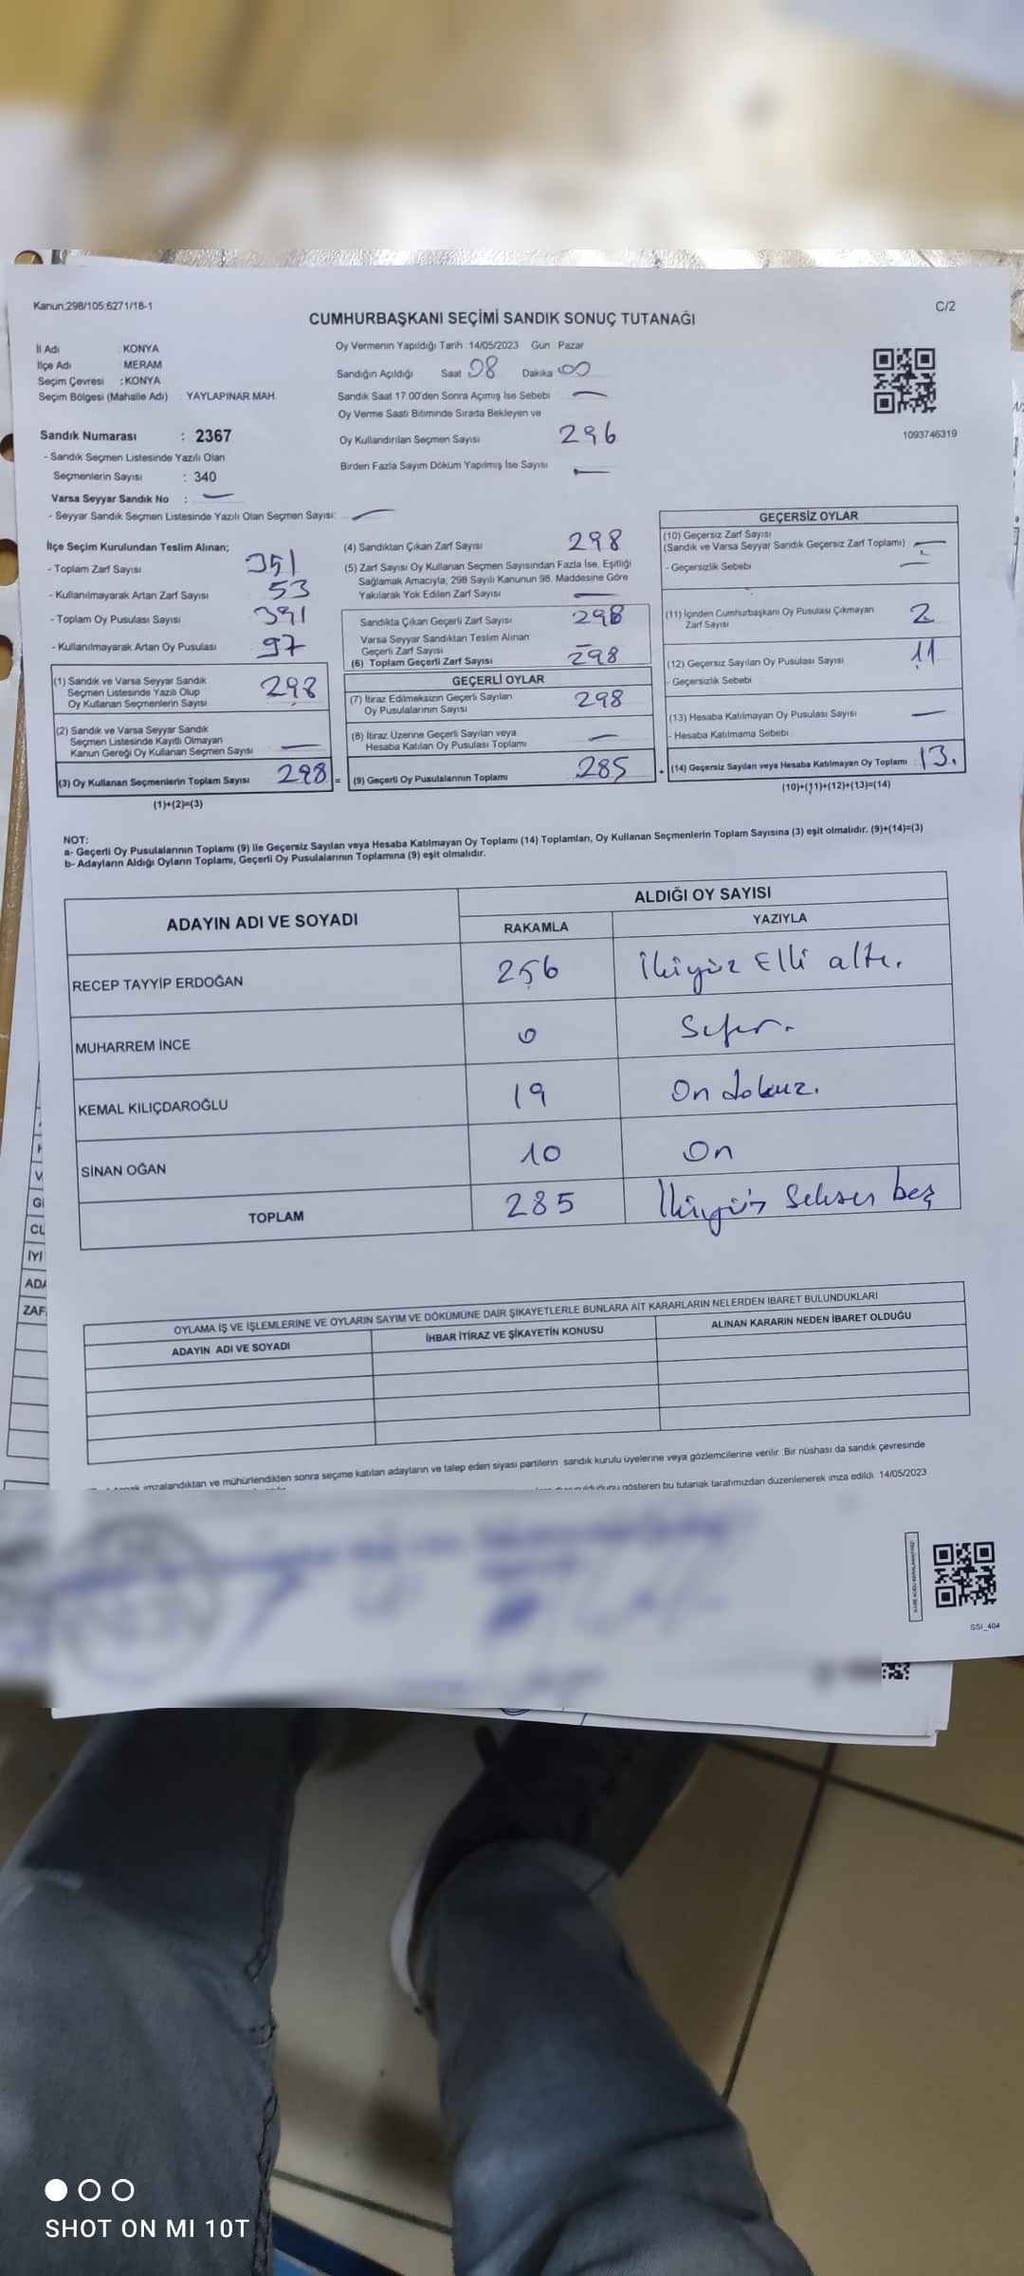 Kanun;298/105;6271/18-1
C/2
CUMHURBAŞKANI SEÇİMİ SANDIK SONUÇ TUTANAĞI
İl Adı : KONYA
İlçe Adı : MERAM
Seçim Çevresi : KONYA
Seçim Bölgesi (Mahalle Adı) YAYLAPINAR MAH.
Oy Vermenin Yapıldığı Tarih :14/05/2023 Gün : Pazar
Sandığın Açıldığı Saat 08 Dakika 00
Sandık Saat 17.00'den Sonra Açımış İse Sebebi —
Oy Verme Saati Bitiminde Sırada Bekleyen ve
Oy Kullandırılan Seçmen Sayısı 296
Birden Fazla Sayım Döküm Yapılmış İse Sayısı —
1093746319
Sandık Numarası : 2367
- Sandık Seçmen Listesinde Yazılı Olan
Seçmenlerin Sayısı : 340
Varsa Seyyar Sandık No : —
- Seyyar Sandık Seçmen Listesinde Yazılı Olan Seçmen Sayısı: —
İlçe Seçim Kurulundan Teslim Alınan;
- Toplam Zarf Sayısı 351
- Kullanılmayarak Artan Zarf Sayısı 53
- Toplam Oy Pusulası Sayısı 391
- Kullanılmayarak Artan Oy Pusulası 97
(1) Sandık ve Varsa Seyyar Sandık
Seçmen Listesinde Yazılı Olup
Oy Kullanan Seçmenlerin Sayısı 298
(2) Sandık ve Varsa Seyyar Sandık
Seçmen Listesinde Kayıtlı Olmayan
Kanun Gereği Oy Kullanan Seçmen Sayısı —
(3) Oy Kullanan Seçmenlerin Toplam Sayısı 298 =
(1)+(2)=(3)
(4) Sandıktan Çıkan Zarf Sayısı 298
(5) Zarf Sayısı Oy Kullanan Seçmen Sayısından Fazla İse, Eşitliği
Sağlamak Amacıyla, 298 Sayılı Kanunun 98. Maddesine Göre
Yakılarak Yok Edilen Zarf Sayısı —
Sandıkta Çıkan Geçerli Zarf Sayısı 298
Varsa Seyyar Sandıktan Teslim Alınan
Geçerli Zarf Sayısı —
(6) Toplam Geçerli Zarf Sayısı 298
GEÇERLİ OYLAR
(7) İtiraz Edilmeksizin Geçerli Sayılan
Oy Pusulalarının Sayısı 298
(8) İtiraz Üzerine Geçerli Sayılan veya
Hesaba Katılan Oy Pusulası Toplamı —
(9) Geçerli Oy Pusulalarının Toplamı 285 +
GEÇERSİZ OYLAR
(10) Geçersiz Zarf Sayısı
(Sandık ve Varsa Seyyar Sandık Geçersiz Zarf Toplamı) —
- Geçersizlik Sebebi —
(11) İçinden Cumhurbaşkanı Oy Pusulası Çıkmayan
Zarf Sayısı 2
(12) Geçersiz Sayılan Oy Pusulası Sayısı 11
- Geçersizlik Sebebi
(13) Hesaba Katılmayan Oy Pusulası Sayısı —
- Hesaba Katılmama Sebebi
(14) Geçersiz Sayılan veya Hesaba Katılmayan Oy Toplamı : 13.
(10)+(11)+(12)+(13)=(14)
NOT:
a- Geçerli Oy Pusulalarının Toplamı (9) ile Geçersiz Sayılan veya Hesaba Katılmayan Oy Toplamı (14) Toplamları, Oy Kullanan Seçmenlerin Toplam Sayısına (3) eşit olmalıdır. (9)+(14)=(3)
b- Adayların Aldığı Oyların Toplamı, Geçerli Oy Pusulalarının Toplamına (9) eşit olmalıdır.
ADAYIN ADI VE SOYADI
ALDIĞI OY SAYISI
RAKAMLA YAZIYLA
RECEP TAYYİP ERDOĞAN 256 İkiyüz Elli altı.
MUHARREM İNCE 0 Sıfır.
KEMAL KILIÇDAROĞLU 19 On dokuz.
SİNAN OĞAN 10 On
TOPLAM 285 İkiyüz Seksen beş
OYLAMA İŞ VE İŞLEMLERİNE VE OYLARIN SAYIM VE DÖKÜMÜNE DAİR ŞİKAYETLERLE BUNLARA AİT KARARLARIN NELERDEN İBARET BULUNDUKLARI
ADAYIN ADI VE SOYADI
İHBAR İTİRAZ VE ŞİKAYETİN KONUSU
ALINAN KARARIN NEDEN İBARET OLDUĞU
imzalandıktan ve mühürlendikten sonra seçime katılan adayların ve talep eden siyasi partilerin sandık kurulu üyelerine veya gözlemcilerine verilir. Bir nüshası da sandık çevresinde
gösteren bu tutanak tarafımızdan düzenlenerek imza edildi. 14/05/2023
SSI_404
V
Gİ
CU
İYİ
ADA
ZAF
SHOT ON MI 10T